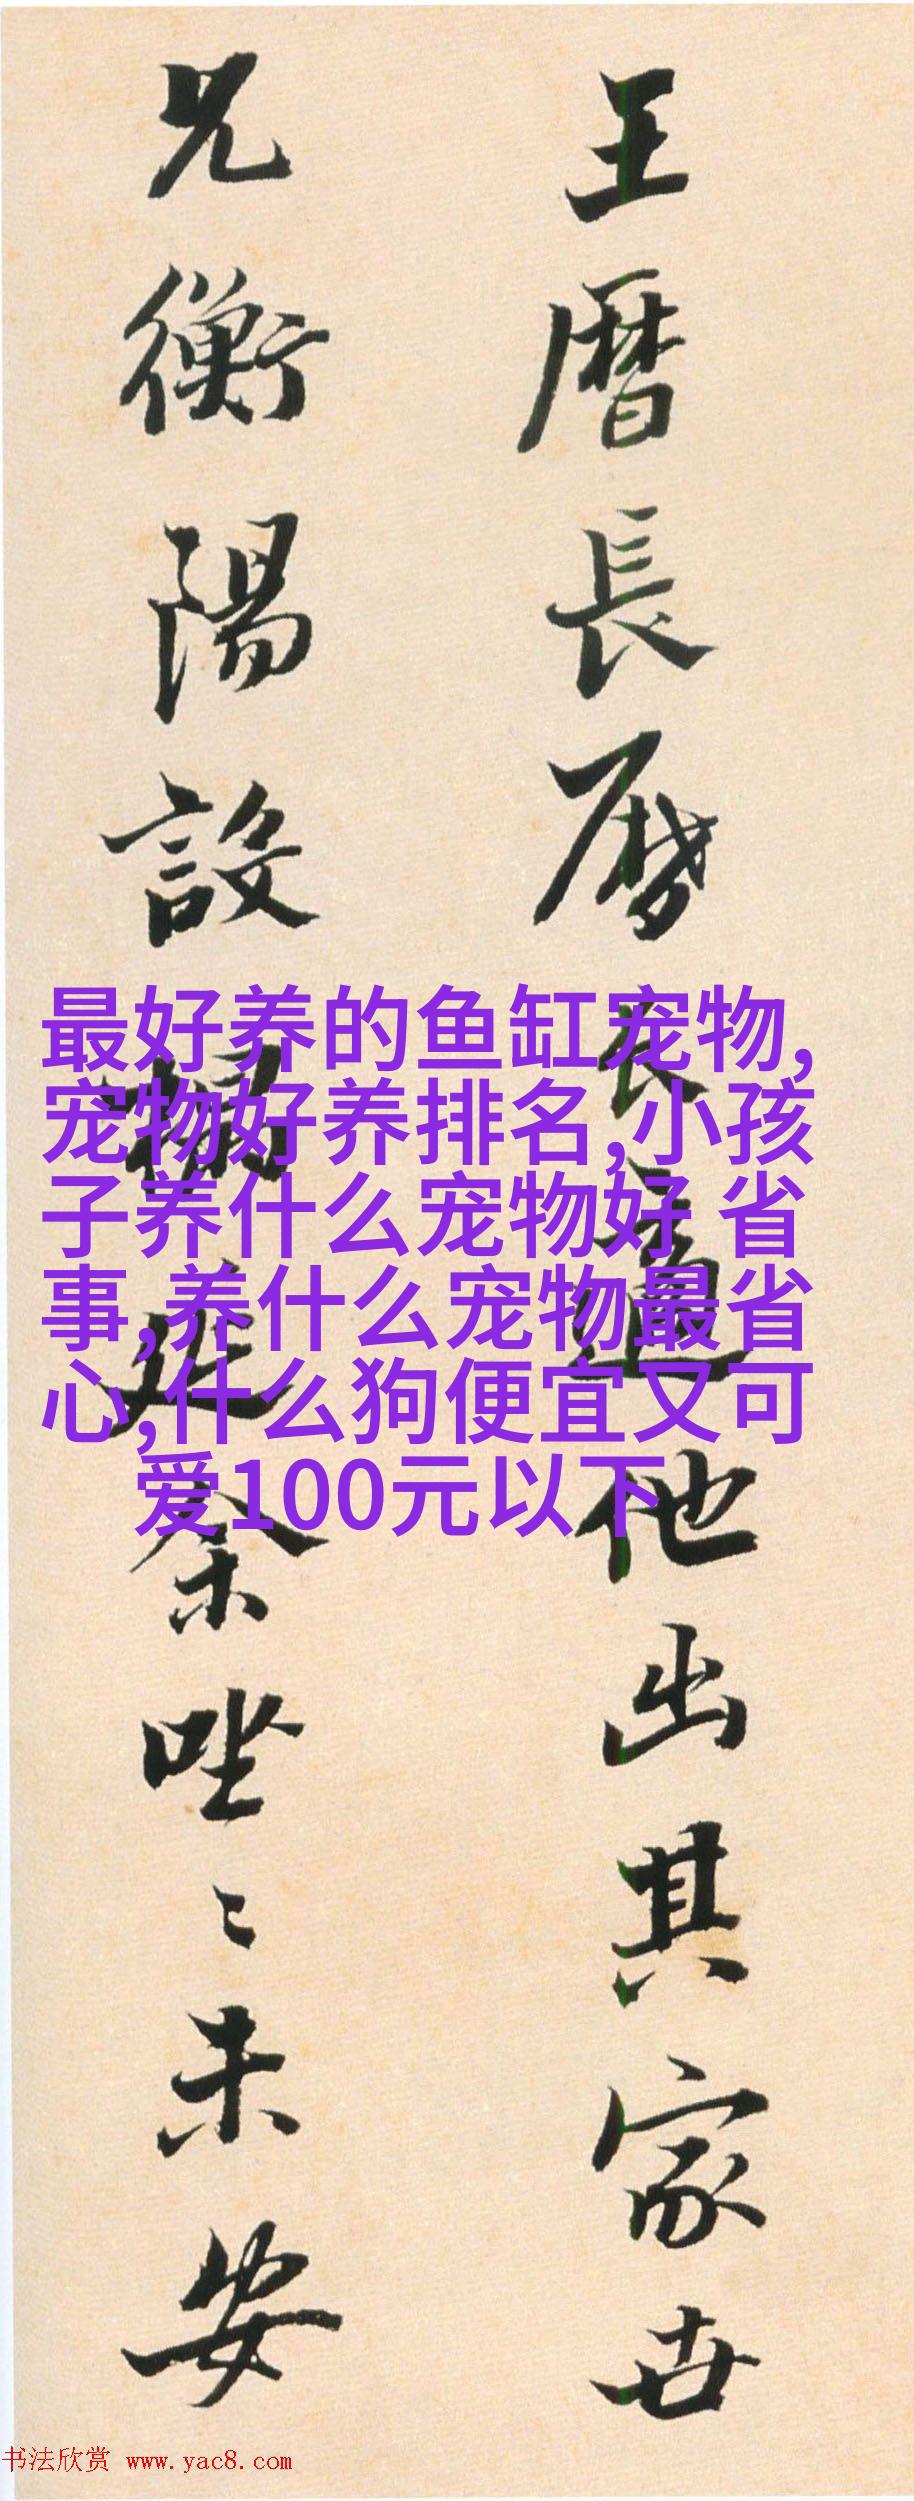 王曆長曆長適他出其家
兄衡陽設榻延余唑〻未安
最好养的鱼缸宠物,
宠物好养排名,小孩
子养什么宠物好 省
事,养什么宠物最省
心,什么狗便宜又可
爱100元以下
书法欣赏 www.yac8.com